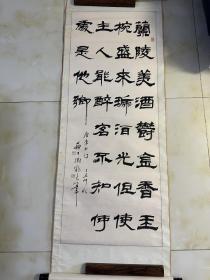 蘭陵美酒鬱金香玉
椀盛來琥珀光但使
主人能醉客不知何
處是他鄉